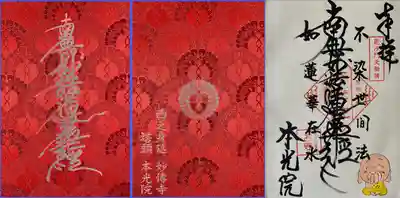 南無妙法蓮華経
西之身延 妙傳寺
塔頭 本光院
奉拝
不染世間法
南無妙法蓮華経
如蓮華在水
本光院